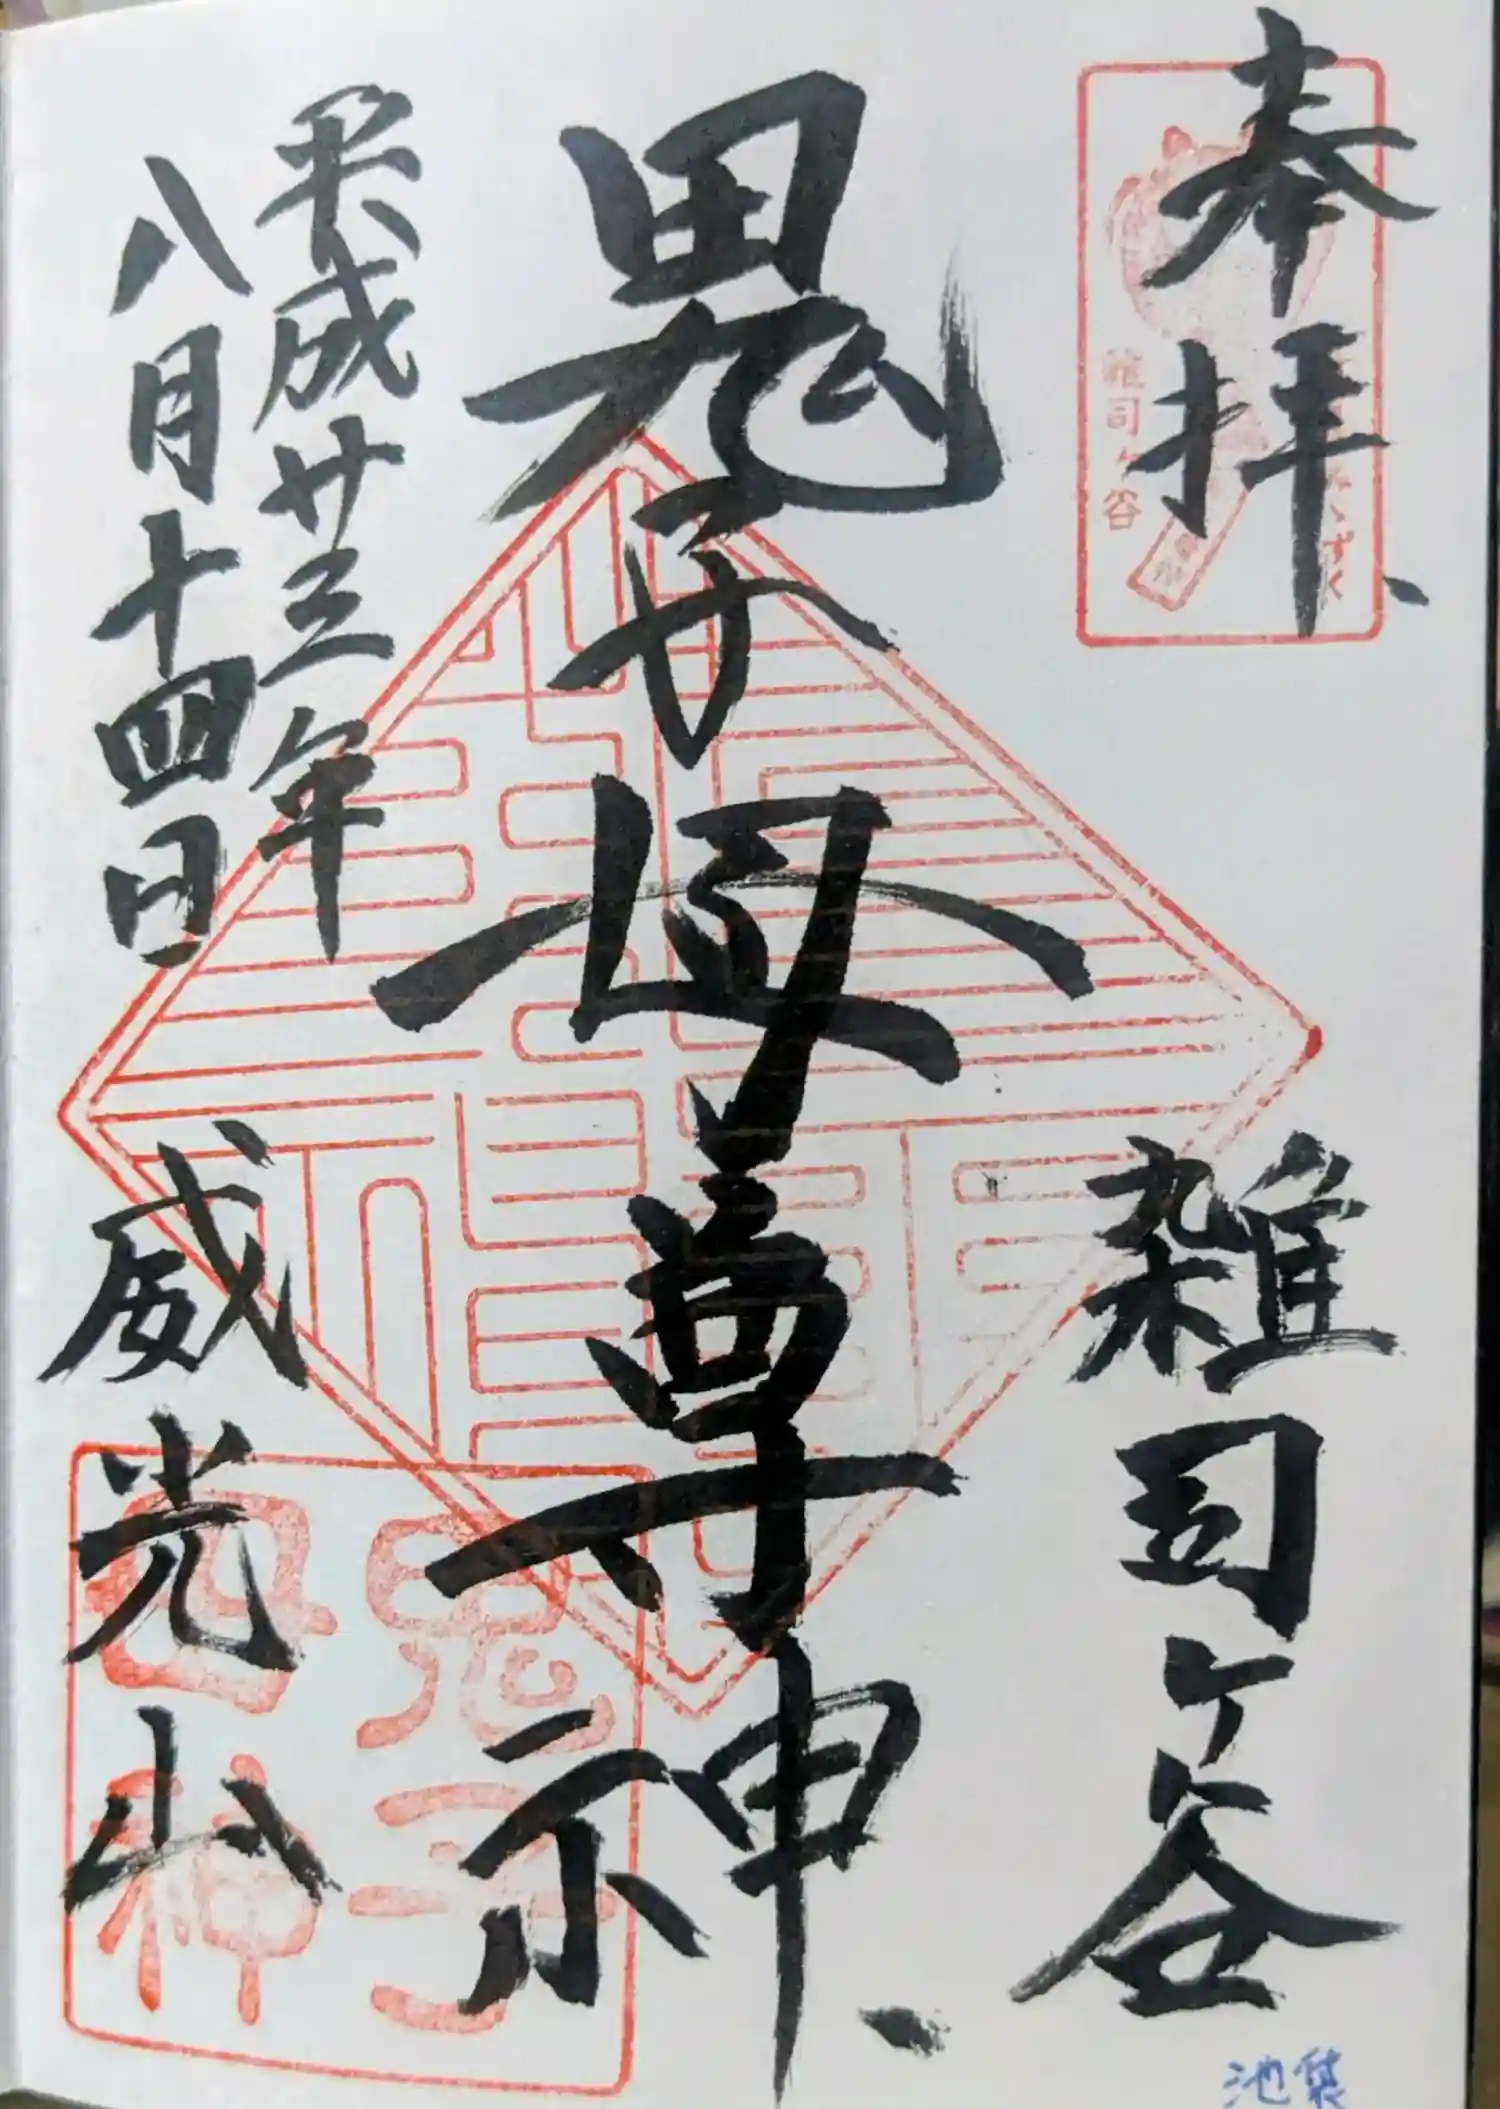 奉拝
雑司ヶ谷
鬼子母尊神
平成廿三年
八月十四日
威光山
雑司ヶ谷
みゝずく
鬼子
母神
池袋